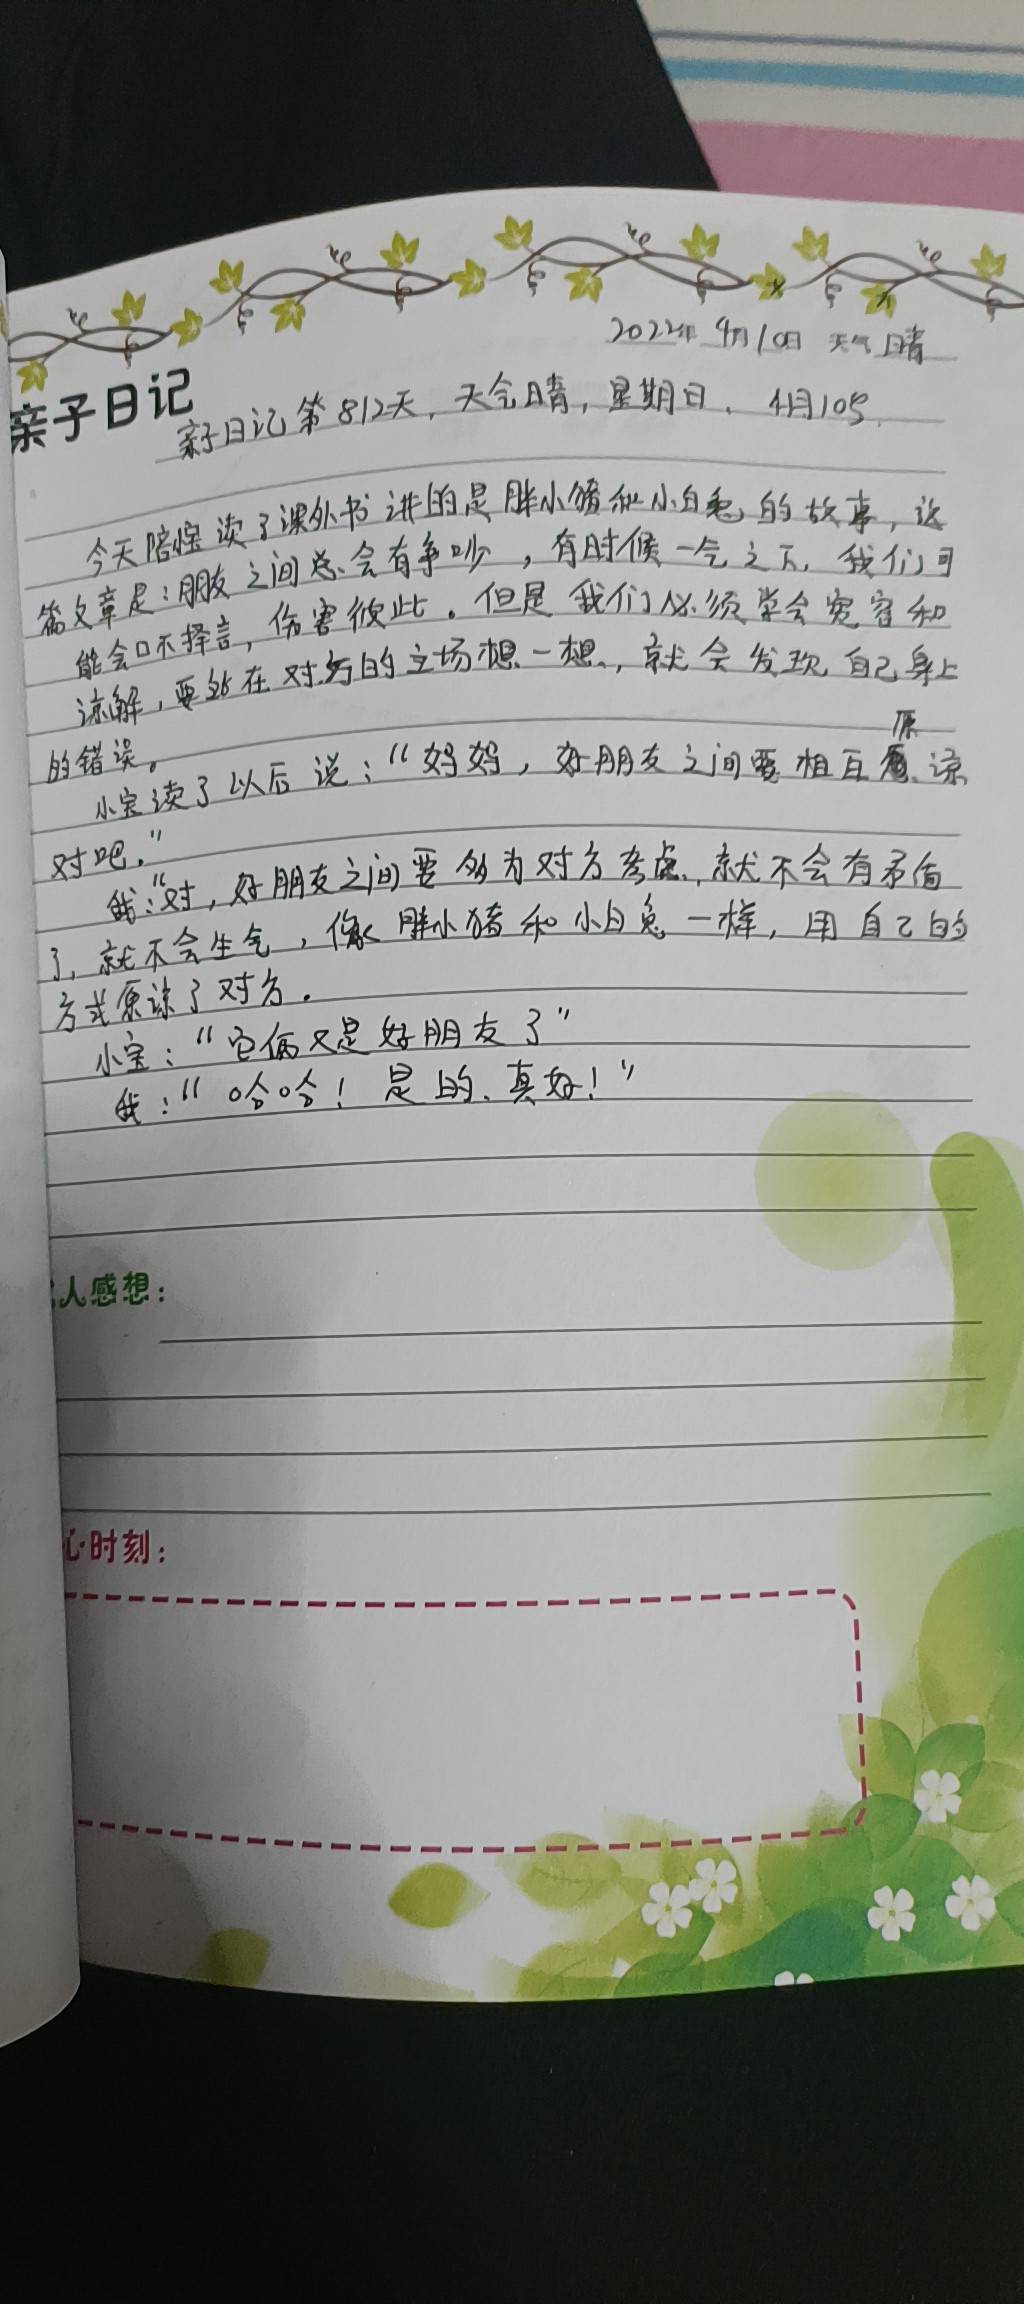 2022年4月10日 天气 晴
亲子日记
亲子日记第812天，天气晴，星期日，4月10号
今天陪小宝读了课外书讲的是胖小猪和小白兔的故事，这
篇文章是：朋友之间总会有争吵，有时候一气之下，我们可
能会口不择言，伤害彼此。但是我们必须学会宽容和
谅解，要站在对方的立场想一想，就会发现自己身上
的错误。
小宝读了以后说：“妈妈，好朋友之间要相互原谅
对吧。”
我：“对，好朋友之间要多为对方考虑，就不会有矛盾
了，就不会生气，像胖小猪和小白兔一样，用自己的
方式原谅了对方。
小宝：“它俩又是好朋友了”
我：“哈哈！是的、真好！”
人感想：
心时刻：